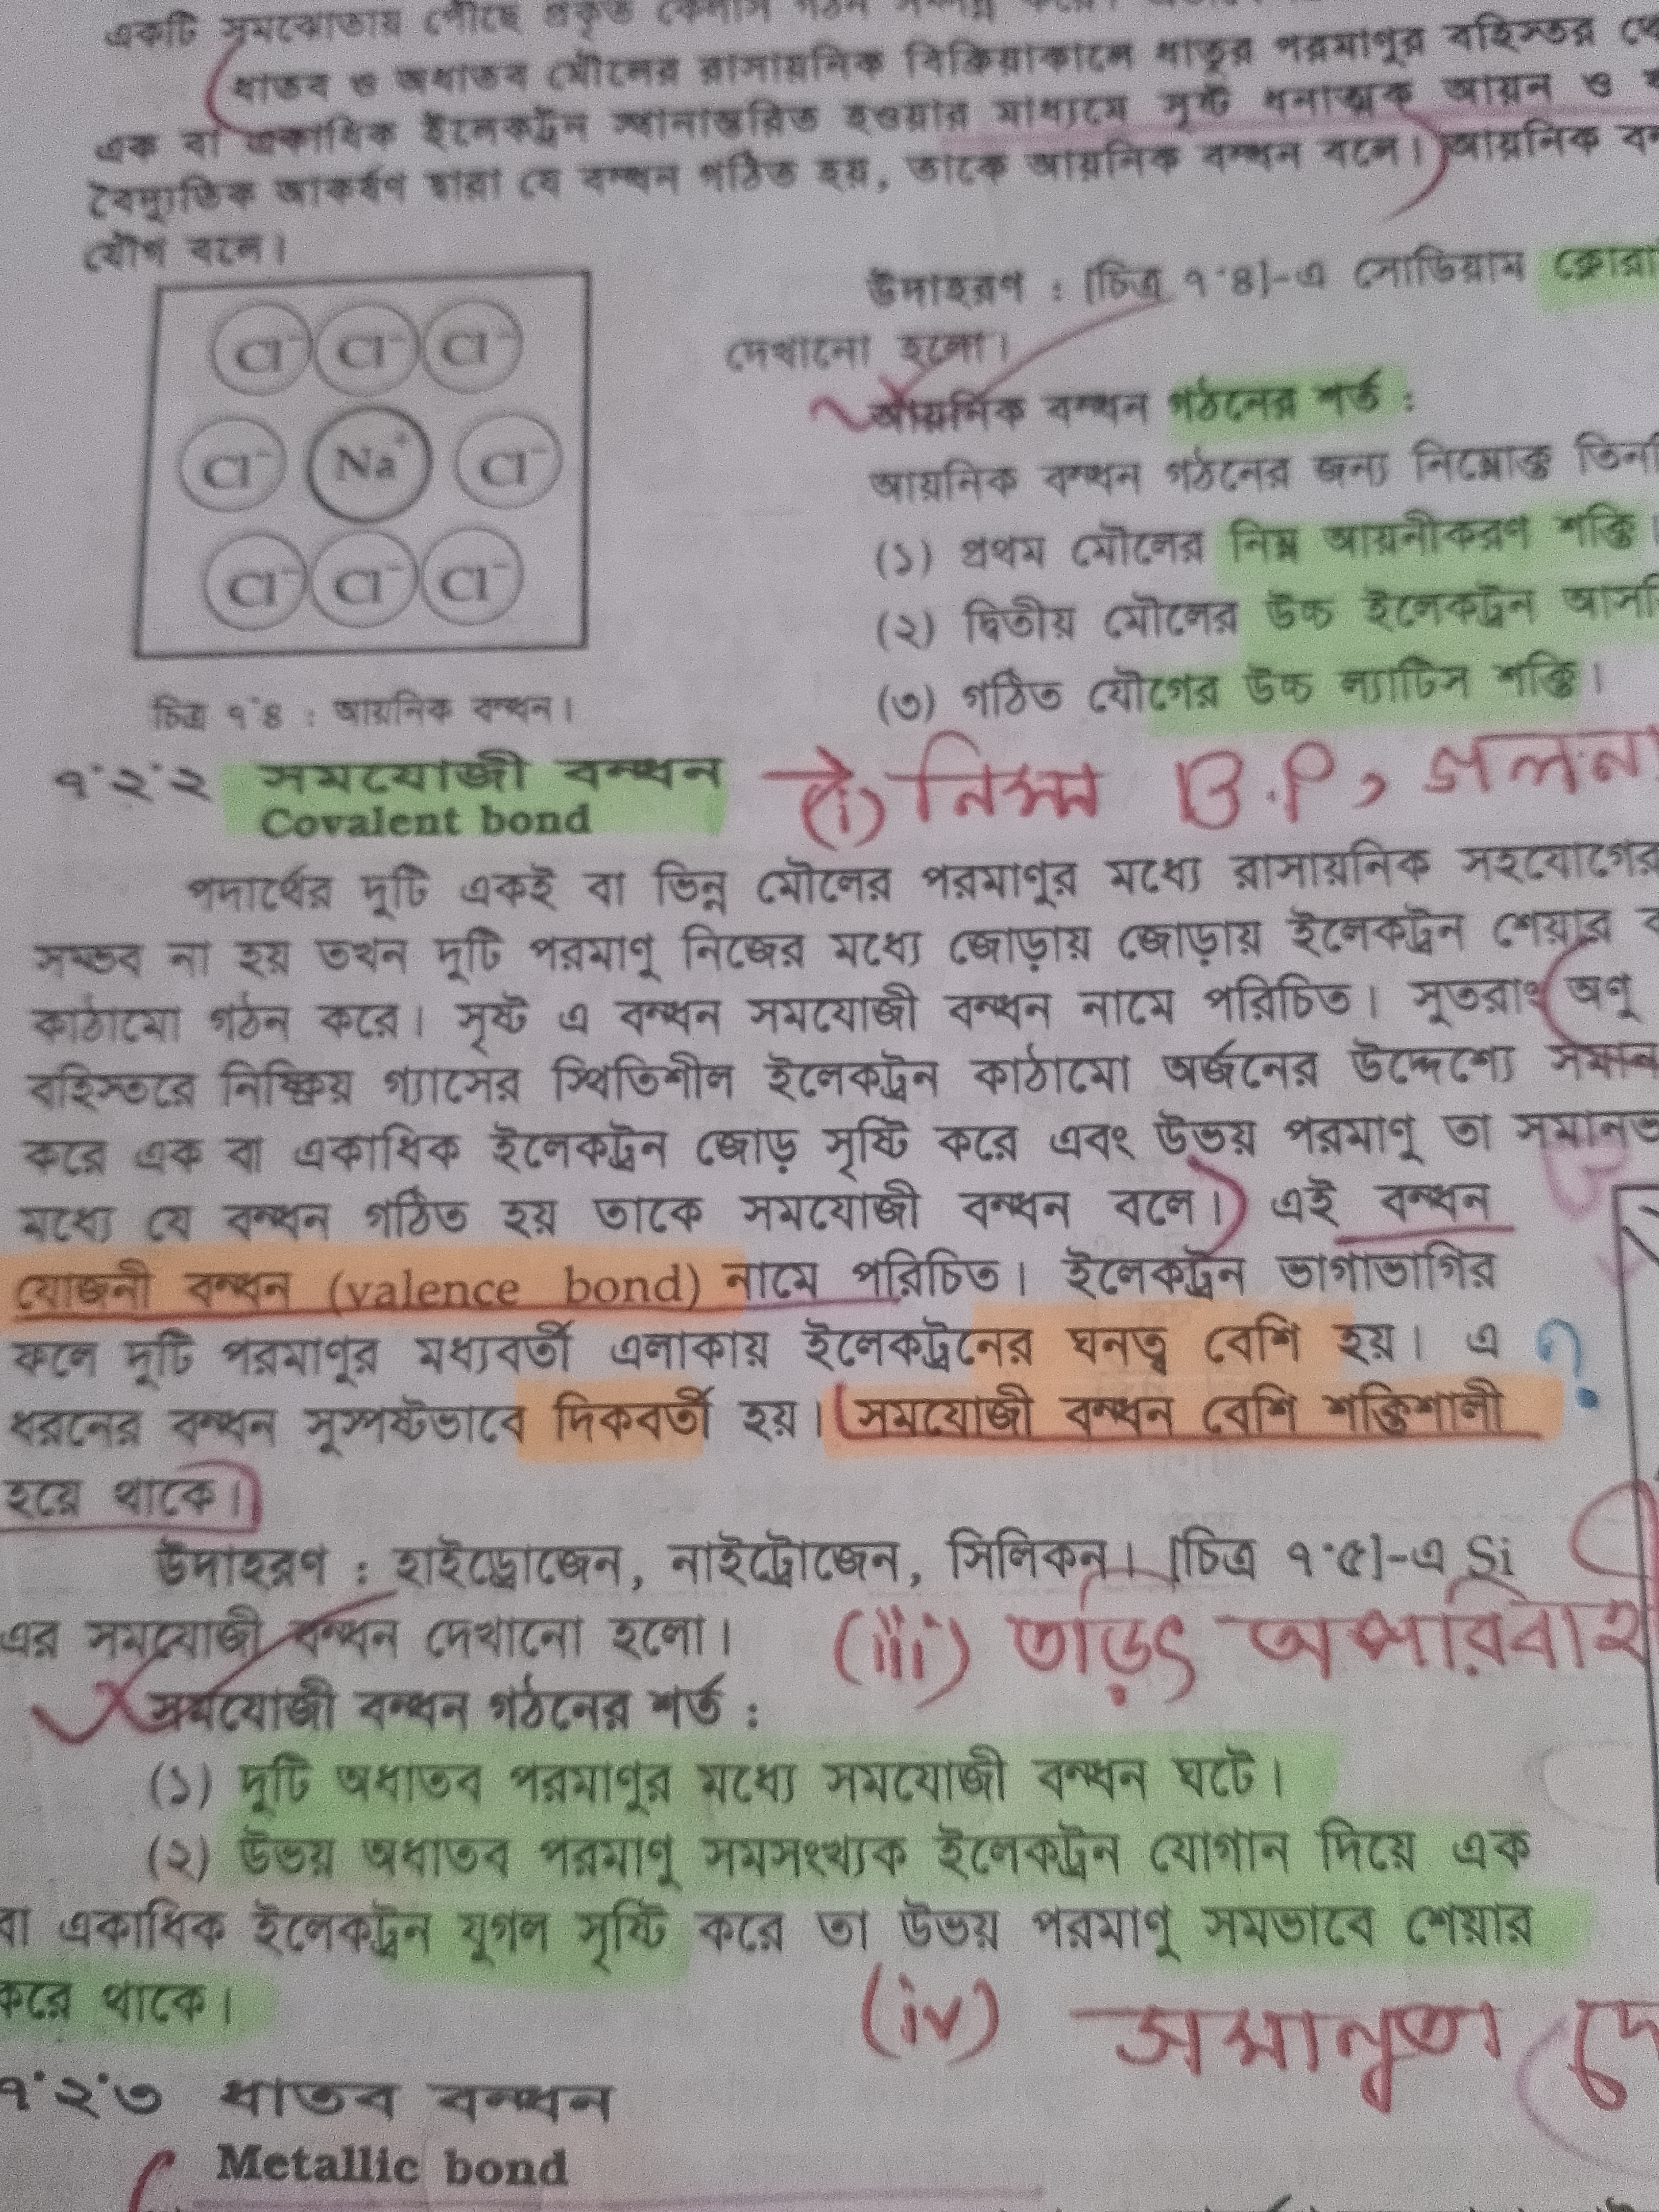 একটি সমঝোতায় পৌঁছে প্রকৃত কেলাস গঠন
ধাতব ও অধাতব মৌলের রাসায়নিক বিক্রিয়াকালে ধাতুর পরমাণুর বহিস্তর
এক বা একাধিক ইলেকট্রন স্থানান্তরিত হওয়ার মাধ্যমে সৃষ্ট ধনাত্মক আয়ন ও
বৈদ্যুতিক আকর্ষণ দ্বারা যে বন্ধন গঠিত হয়, তাকে আয়নিক বন্ধন বলে। আয়নিক
যৌগ বলে।
Cl⁻ Cl⁻ Cl⁻
Cl⁻ Na⁺ Cl⁻
Cl⁻ Cl⁻ Cl⁻
চিত্র ৭·৪ : আয়নিক বন্ধন।
উদাহরণ : [চিত্র ৭·৪]-এ সোডিয়াম ক্লোরা
দেখানো হলো।
আয়নিক বন্ধন গঠনের শর্ত :
আয়নিক বন্ধন গঠনের জন্য নিম্নোক্ত তিন
(১) প্রথম মৌলের নিম্ন আয়নীকরণ শক্তি।
(২) দ্বিতীয় মৌলের উচ্চ ইলেকট্রন আস
(৩) গঠিত যৌগের উচ্চ ল্যাটিস শক্তি।
৭·২·২ সমযোজী বন্ধন (i) নিম্ন B.P, গলনা
Covalent bond
পদার্থের দুটি একই বা ভিন্ন মৌলের পরমাণুর মধ্যে রাসায়নিক সহযোগের
সম্ভব না হয় তখন দুটি পরমাণু নিজের মধ্যে জোড়ায় জোড়ায় ইলেকট্রন শেয়ার
কাঠামো গঠন করে। সৃষ্ট এ বন্ধন সমযোজী বন্ধন নামে পরিচিত। সুতরাং অণু
বহিস্তরে নিষ্ক্রিয় গ্যাসের স্থিতিশীল ইলেকট্রন কাঠামো অর্জনের উদ্দেশ্যে সমান
করে এক বা একাধিক ইলেকট্রন জোড় সৃষ্টি করে এবং উভয় পরমাণু তা সমানভ
মধ্যে যে বন্ধন গঠিত হয় তাকে সমযোজী বন্ধন বলে। এই বন্ধন
যোজনী বন্ধন (valence bond) নামে পরিচিত। ইলেকট্রন ভাগাভাগির
ফলে দুটি পরমাণুর মধ্যবর্তী এলাকায় ইলেকট্রনের ঘনত্ব বেশি হয়। এ ?
ধরনের বন্ধন সুস্পষ্টভাবে দিকবর্তী হয়। সমযোজী বন্ধন বেশি শক্তিশালী
হয়ে থাকে।
উদাহরণ : হাইড্রোজেন, নাইট্রোজেন, সিলিকন। [চিত্র ৭·৫]-এ Si
এর সমযোজী বন্ধন দেখানো হলো। (iii) তড়িৎ অপরিবাহ
সমযোজী বন্ধন গঠনের শর্ত :
(১) দুটি অধাতব পরমাণুর মধ্যে সমযোজী বন্ধন ঘটে।
(২) উভয় অধাতব পরমাণু সমসংখ্যক ইলেকট্রন যোগান দিয়ে এক
বা একাধিক ইলেকট্রন যুগল সৃষ্টি করে তা উভয় পরমাণু সমভাবে শেয়ার
করে থাকে।
(iv) সমানুতা দে
৭·২·৩ ধাতব বন্ধন
Metallic bond